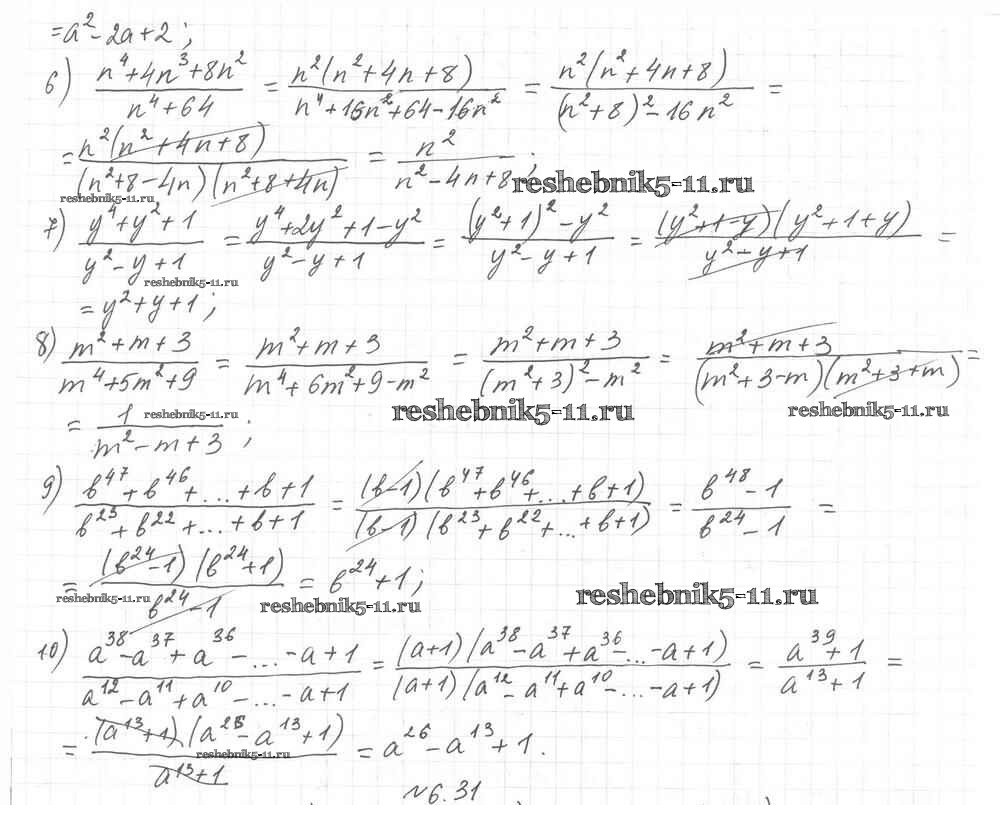 = a² - 2a + 2 ;
6) (n⁴ + 4n³ + 8n²)/(n⁴ + 64) = n²(n² + 4n + 8)/(n⁴ + 16n² + 64 - 16n²) = n²(n² + 4n + 8)/((n² + 8)² - 16n²) =
= n²(n² + 4n + 8)/((n² + 8 - 4n)(n² + 8 + 4n)) = n²/(n² - 4n + 8) ;
reshebnik5-11.ru
reshebnik5-11.ru
7) (y⁴ + y² + 1)/(y² - y + 1) = (y⁴ + 2y² + 1 - y²)/(y² - y + 1) = ((y² + 1)² - y²)/(y² - y + 1) = (y² + 1 - y)(y² + 1 + y)/(y² - y + 1) =
reshebnik5-11.ru
= y² + y + 1 ;
8) (m² + m + 3)/(m⁴ + 5m² + 9) = (m² + m + 3)/(m⁴ + 6m² + 9 - m²) = (m² + m + 3)/((m² + 3)² - m²) = (m² + m + 3)/((m² + 3 - m)(m² + 3 + m)) =
= 1/(m² - m + 3) ;
reshebnik5-11.ru
reshebnik5-11.ru
reshebnik5-11.ru
9) (b⁴⁷ + b⁴⁶ + ... + b + 1)/(b²³ + b²² + ... + b + 1) = (b - 1)(b⁴⁷ + b⁴⁶ + ... + b + 1)/((b - 1)(b²³ + b²² + ... + b + 1)) = (b⁴⁸ - 1)/(b²⁴ - 1) =
= (b²⁴ - 1)(b²⁴ + 1)/(b²⁴ - 1) = b²⁴ + 1 ;
reshebnik5-11.ru
reshebnik5-11.ru
reshebnik5-11.ru
10) (a³⁸ - a³⁷ + a³⁶ - ... - a + 1)/(a¹² - a¹¹ + a¹⁰ - ... - a + 1) = (a + 1)(a³⁸ - a³⁷ + a³⁶ - ... - a + 1)/((a + 1)(a¹² - a¹¹ + a¹⁰ - ... - a + 1)) = (a³⁹ + 1)/(a¹³ + 1) =
= (a¹³ + 1)(a²⁶ - a¹³ + 1)/(a¹³ + 1) = a²⁶ - a¹³ + 1 .
reshebnik5-11.ru
№ 6.31